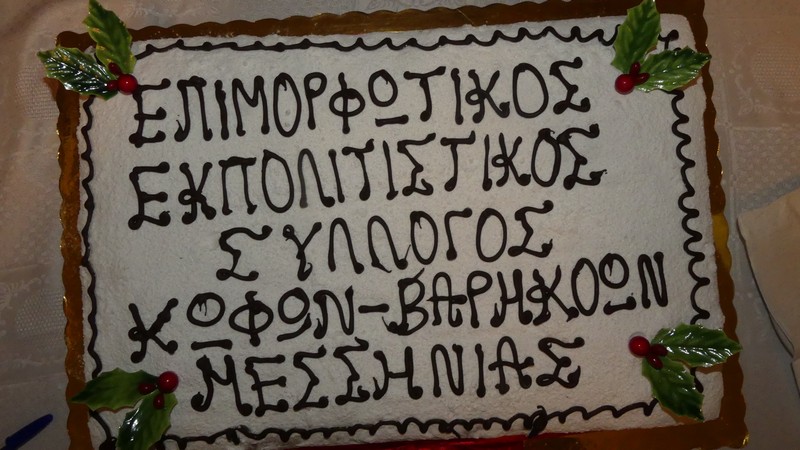 ΕΠΙΜΟΡΦΩΤΙΚΟΣ
ΕΚΠΟΛΙΤΙΣΤΙΚΟΣ
ΣΥΛΛΟΓΟΣ
ΚΩΦΩΝ-ΒΑΡΗΚΟΩΝ
ΜΕΣΣΗΝΙΑΣ